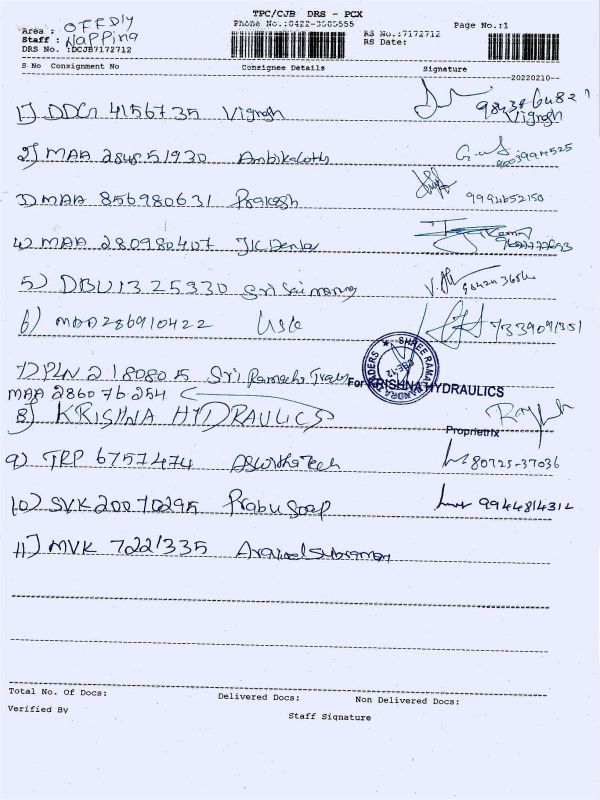 TPC/CJB DRS - PCX
Area : OFF DLY
Phone No.:0422-3503555
RS No.:7172712
Page No.:1
Staff : Napping
RS Date:
DRS No. :DCJB7172712
S No Consignment No Consignee Details Signature
20220210
1) DDG 4156735 Vignesh
Vignesh
2) MAA 284851930 Ambikaloth
3) MAA 856980631 Prakash 9994652150
4) MAA 280980407 JK Denta
5) DBU1325330 Sri Sai
6) MAA 286910422 Usle 7339091351
7) PLN 2180805 Sri Ramachs Trads
SHREE RAMACHANDRA TRADERS
CBE-12
For KRISHNA HYDRAULICS
MAA 286076254
8) KRISHNA HYDRAULICS
Proprietrix
9) TRP 6757474 Aswitha Tech 80725-37036
10) SVK 20070295 Prabu Soap 9944814312
11) MVK 7221335
Total No. Of Docs: Delivered Docs: Non Delivered Docs:
Verified By
Staff Signature